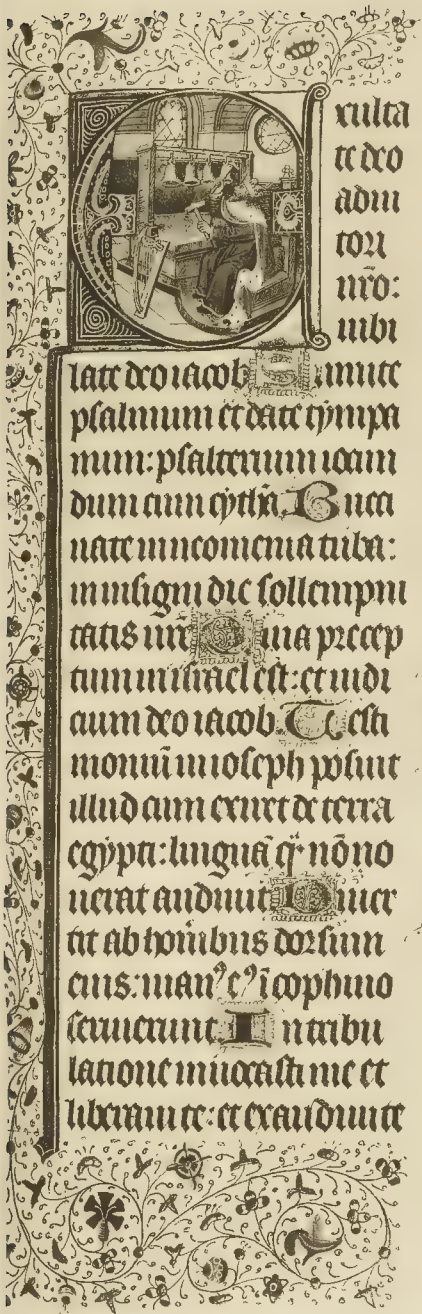 Exulta
te deo
adiu
tori
nr̄o:
iubi
late deo iacob Sumite
psalmum et date tympa
num: psalterium iocun
dum cum cyth̄a. Bucci
nate in neomenia tuba:
in insigni die sollempni
tatis nr̄e Quia precep
tum in israel est: et iudi
cium deo iacob. Testi
moniū in ioseph posuit
illud cum exiret de terra
egypti: linguā q̄ nōno
uerat audiuit Diuer
tit ab honībus dorsum
eius: man⁹ e⁹ ī cophino
seruierunt. In tribu
latione inuocasti me et
liberaui te: et exaudiui te